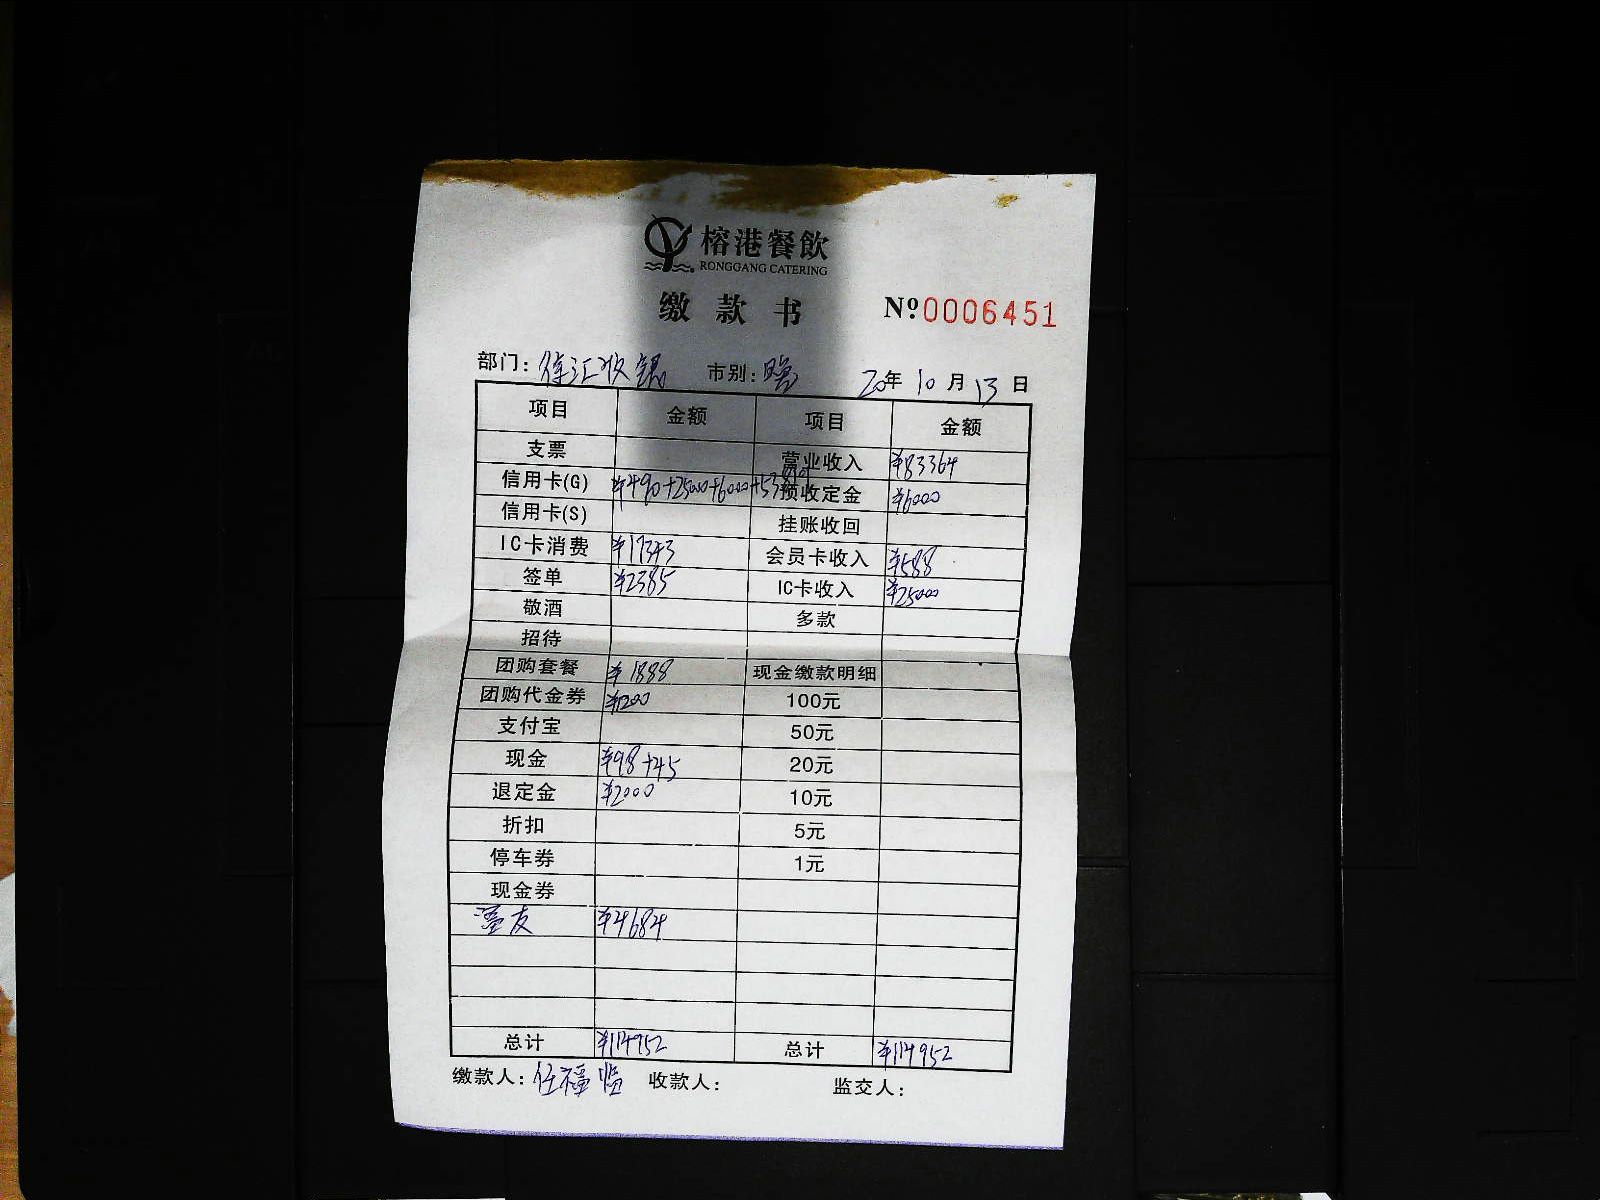 榕港餐飲
RONGGANG CATERING
缴款书 Nº0006451
部门：徐汇收银 市别：晚 20年10月13日
项目 金额 项目 金额
支票 营业收入 ¥83364
信用卡(G) ¥490+25000+6000+53819 预收定金 ¥6000
信用卡(S) 挂账收回
IC卡消费 ¥17343 会员卡收入 ¥588
签单 ¥2385 IC卡收入 ¥25000
敬酒 多款
招待
团购套餐 ¥1888 现金缴款明细
团购代金券 ¥1200 100元
支付宝 50元
现金 ¥98+45 20元
退定金 ¥2000 10元
折扣 5元
停车券 1元
现金券
友 ¥4684
总计 ¥114952 总计 ¥114952
缴款人：任福 收款人： 监交人：